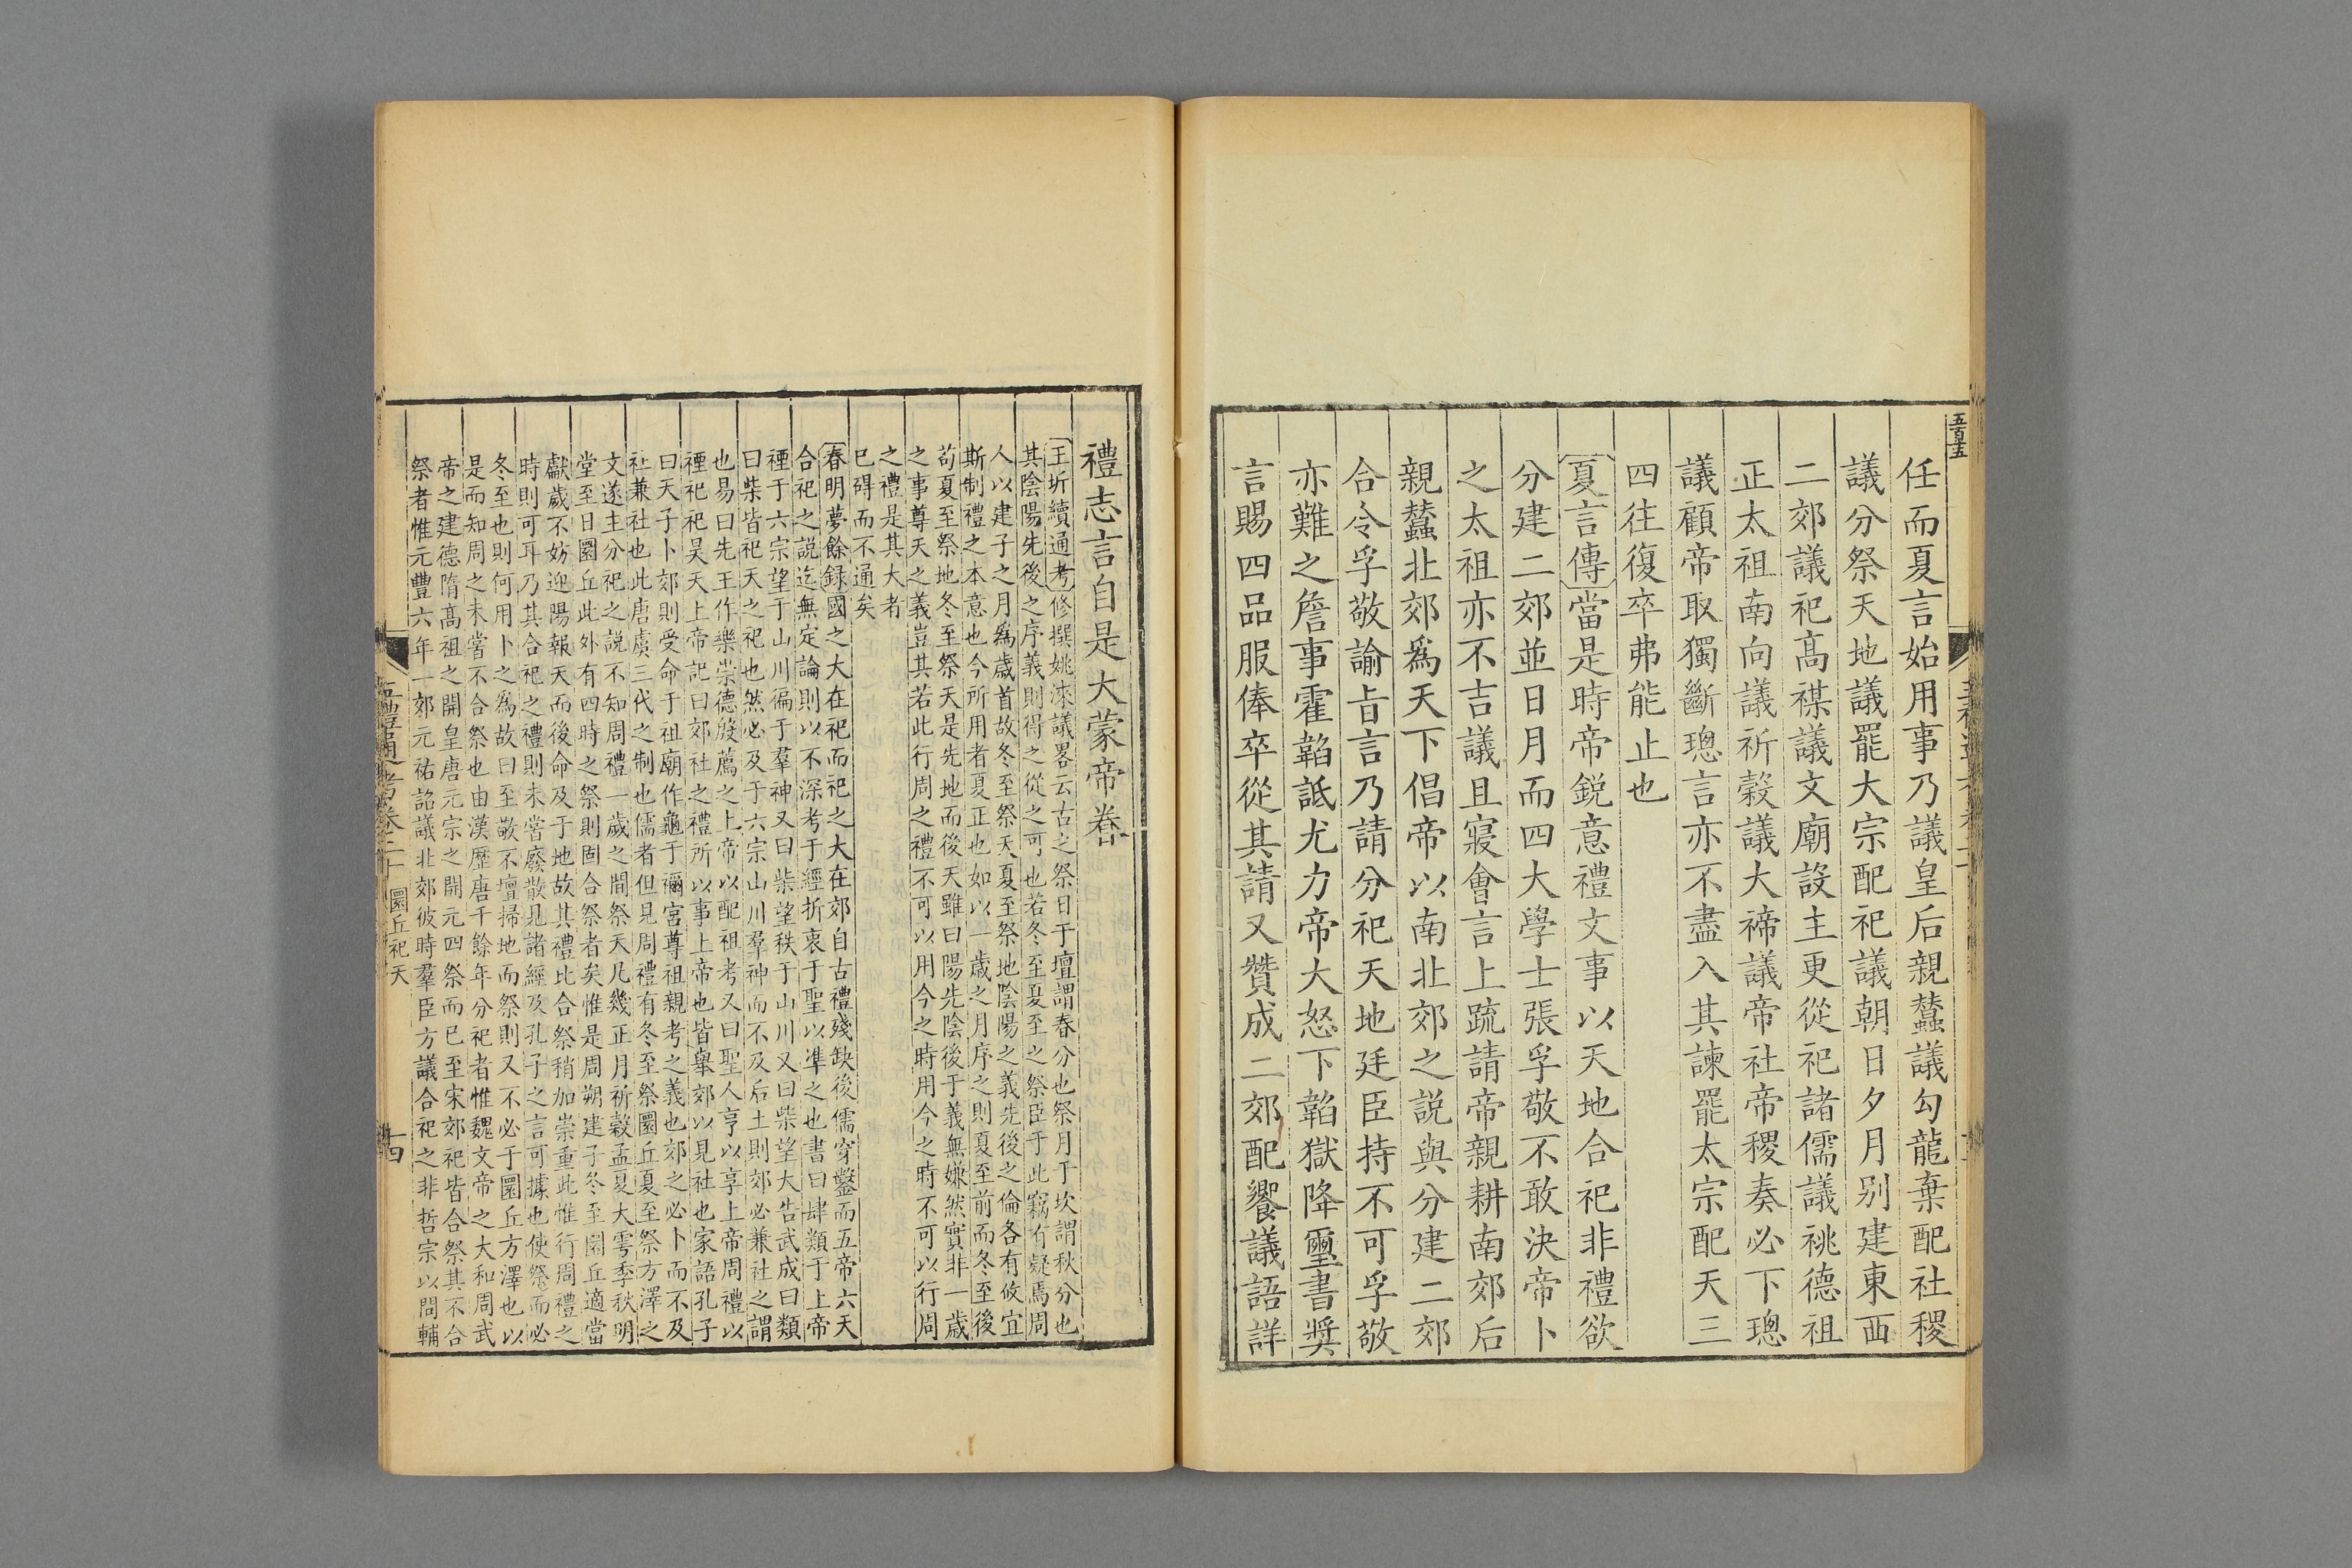 五百十五
任而夏言始用事乃議皇后親蠶議勾龍棄配社稷
議分祭天地議罷大宗配祀議朝日夕月别建東西
二郊議祀髙禖議文廟設主更從祀諸儒議祧德祖
正太祖南向議祈穀議大禘議帝社帝稷奏必下璁
議顧帝取獨斷璁言亦不盡入其諫罷太宗配天三
四往復卒弗能止也
夏言傳當是時帝銳意禮文事以天地合祀非禮欲
分建二郊並日月而四大學士張孚敬不敢決帝卜
之太祖亦不吉議且寢會言上疏請帝親耕南郊后
親蠶北郊爲天下倡帝以南北郊之說與分建二郊
合令孚敬諭旨言乃請分祀天地廷臣持不可孚敬
亦難之詹事霍韜詆尤力帝大怒下韜獄降璽書奬
言賜四品服俸卒從其請又贊成二郊配饗議語詳
禮志言自是大蒙帝眷
王圻續通考修撰姚淶議畧云古之祭日于壇謂春分也祭月于坎謂秋分也
其陰陽先後之序義則得之從之可也若冬至夏至之祭臣于此竊有疑焉周
人以建子之月爲歲首故冬至祭天夏至祭地陰陽之義先後之倫各有攸宜
斯制禮之本意也今所用者夏正也如以一歲之月序之則夏至前而冬至後
茍夏至祭地冬至祭天是先地而後天雖曰陽先陰後于義無嫌然實非一歲
之事尊天之義豈其若此行周之禮不可以用今之時用今之時不可以行周
之禮是其大者
已碍而不通矣
春明夢餘録國之大在祀而祀之大在郊自古禮殘缺後儒穿鑿而五帝六天
合祀之說迄無定論則以不深考于經折衷于聖以準之也書曰肆類于上帝
禋于六宗望于山川徧于羣神又曰柴望秩于山川又曰柴望大告武成曰類
曰柴皆祀天之祀也然必及于六宗山川羣神而不及后土則郊必兼社之謂
也易曰先王作樂崇德殷薦之上帝以配祖考又曰聖人亨以享上帝周禮以
禋祀祀昊天上帝記曰郊社之禮所以事上帝也皆舉郊以見社也家語孔子
曰天子卜郊則受命于祖廟作龜于禰宮尊祖親考之義也郊之必卜而不及
社兼社也此唐虞三代之制也儒者但見周禮有冬至祭圜丘夏至祭方澤之
文遂主分祀之說不知周禮一歲之間祭天凡幾正月祈穀孟夏大雩季秋明
堂至日圜丘此外有四時之祭則固合祭者矣惟是周朔建子冬至圜丘適當
獻歲不妨迎陽報天而後命及于地故其禮比合祭稍加崇重此惟行周禮之
時則可耳乃其合祀之禮則未嘗廢散見諸經及孔子之言可據也使祭而必
冬至也則何用卜之爲故曰至敬不壇掃地而祭則又不必于圜丘方澤也以
是而知周之未嘗不合祭也由漢歷唐千餘年分祀者惟魏文帝之大和周武
帝之建德隋髙祖之開皇唐元宗之開元四祭而已至宋郊祀皆合祭其不合
祭者惟元豐六年一郊元祐詔議北郊彼時羣臣方議合祀之非哲宗以問輔
五禮通考卷二十 圜丘祀天 十四